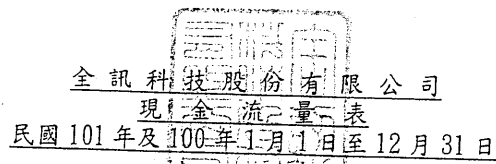 全訊科技股份有限公司
現金流量表
民國101年及100年1月1日至12月31日